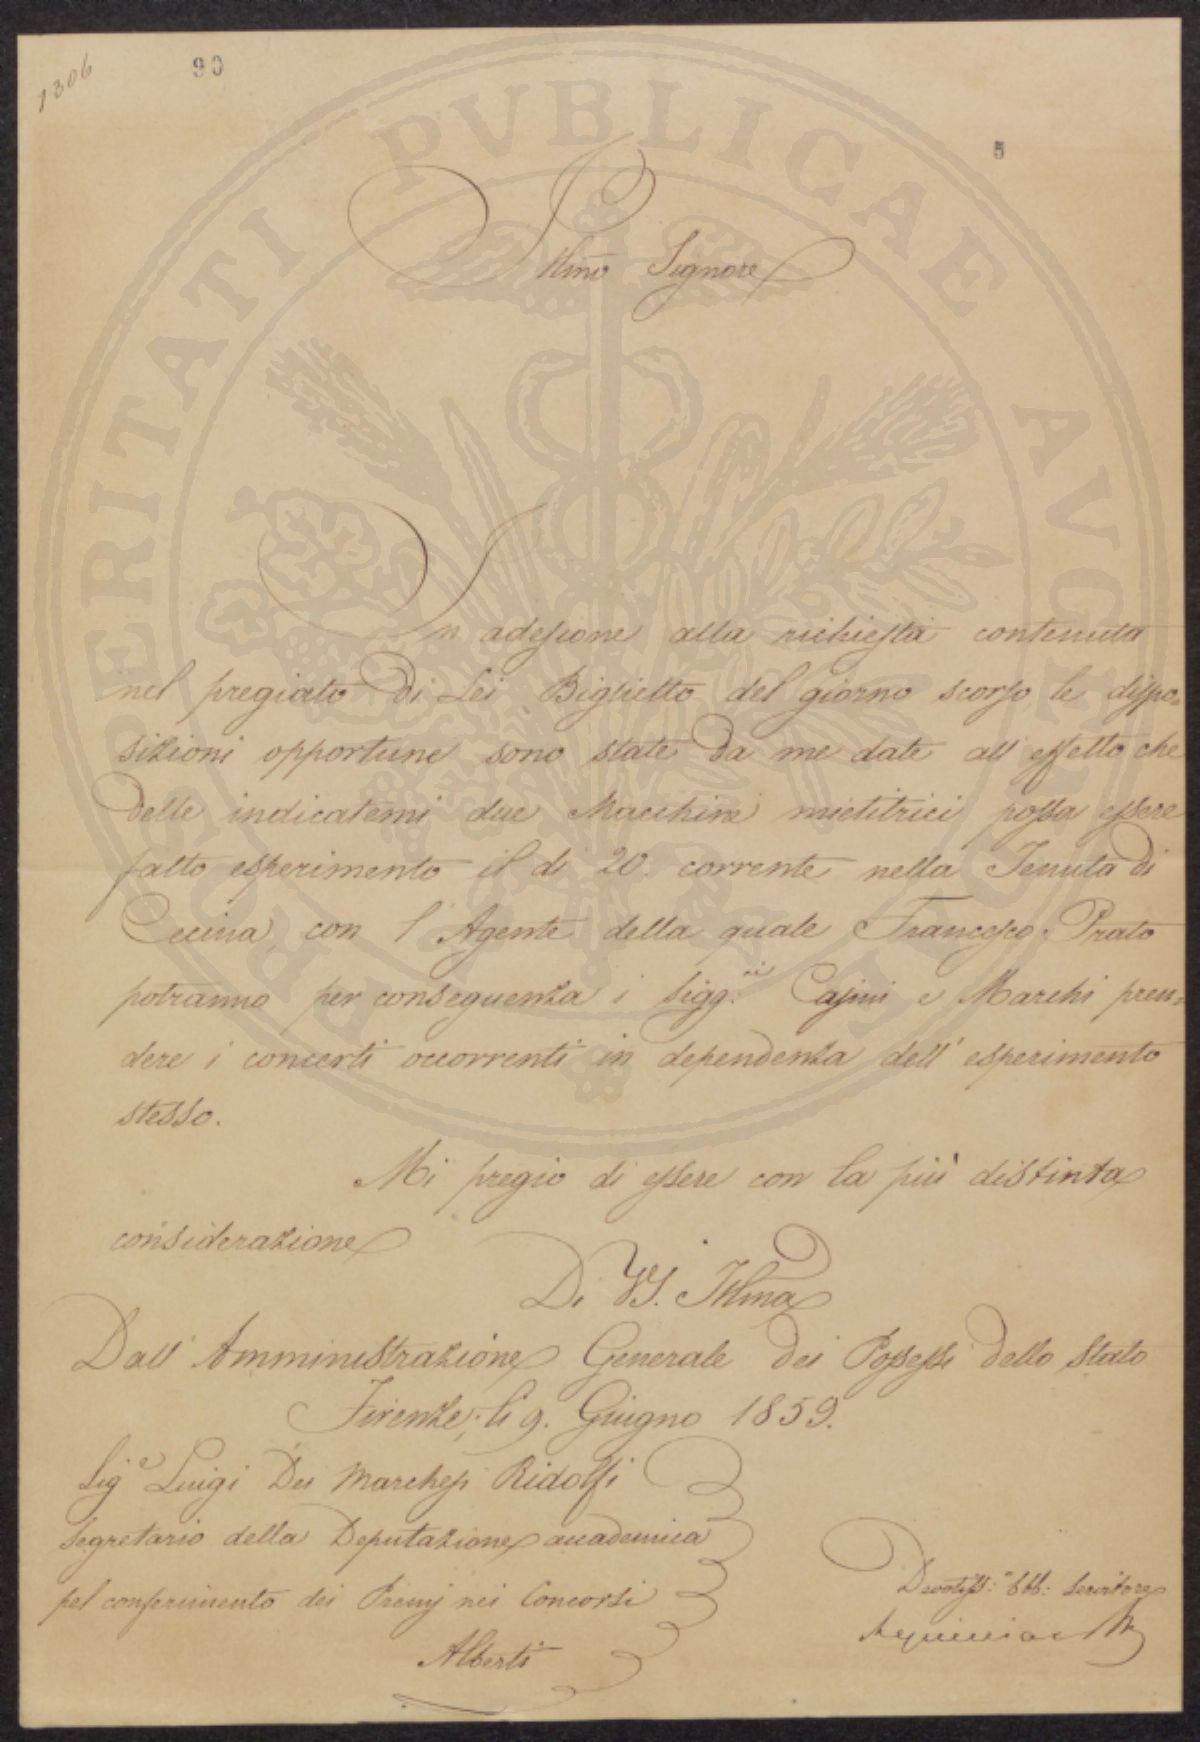 1306
90
5
PROSPERITATI PVBLICAE AVGENDAE
Illmo Signore
In adesione alla richiesta contenuta
nel pregiato di Lei Biglietto del giorno scorso le dispo=
sizioni opportune sono state da me date all'effetto che
delle indicatemi due Macchine mietitrici possa essere
fatto esperimento il dì 20. corrente nella Tenuta di
Cecina con l'Agente della quale Francesco Prato
potranno per conseguenza i Sigg.ri Cajini e Marchi pren=
dere i concerti occorrenti in dipendenza dell'esperimento
stesso.
Mi pregio di essere con la più distinta
considerazione
Di VS. Illma
Dall'Amministrazione Generale dei Possessi dello Stato
Firenze, li 9. Giugno 1859.
Sig.e Luigi Dei Marchesi Ridolfi
Segretario della Deputazione accademica
pel conferimento dei Premj nei Concorsi
Alberti
Devotiss:o Obb: Servitore